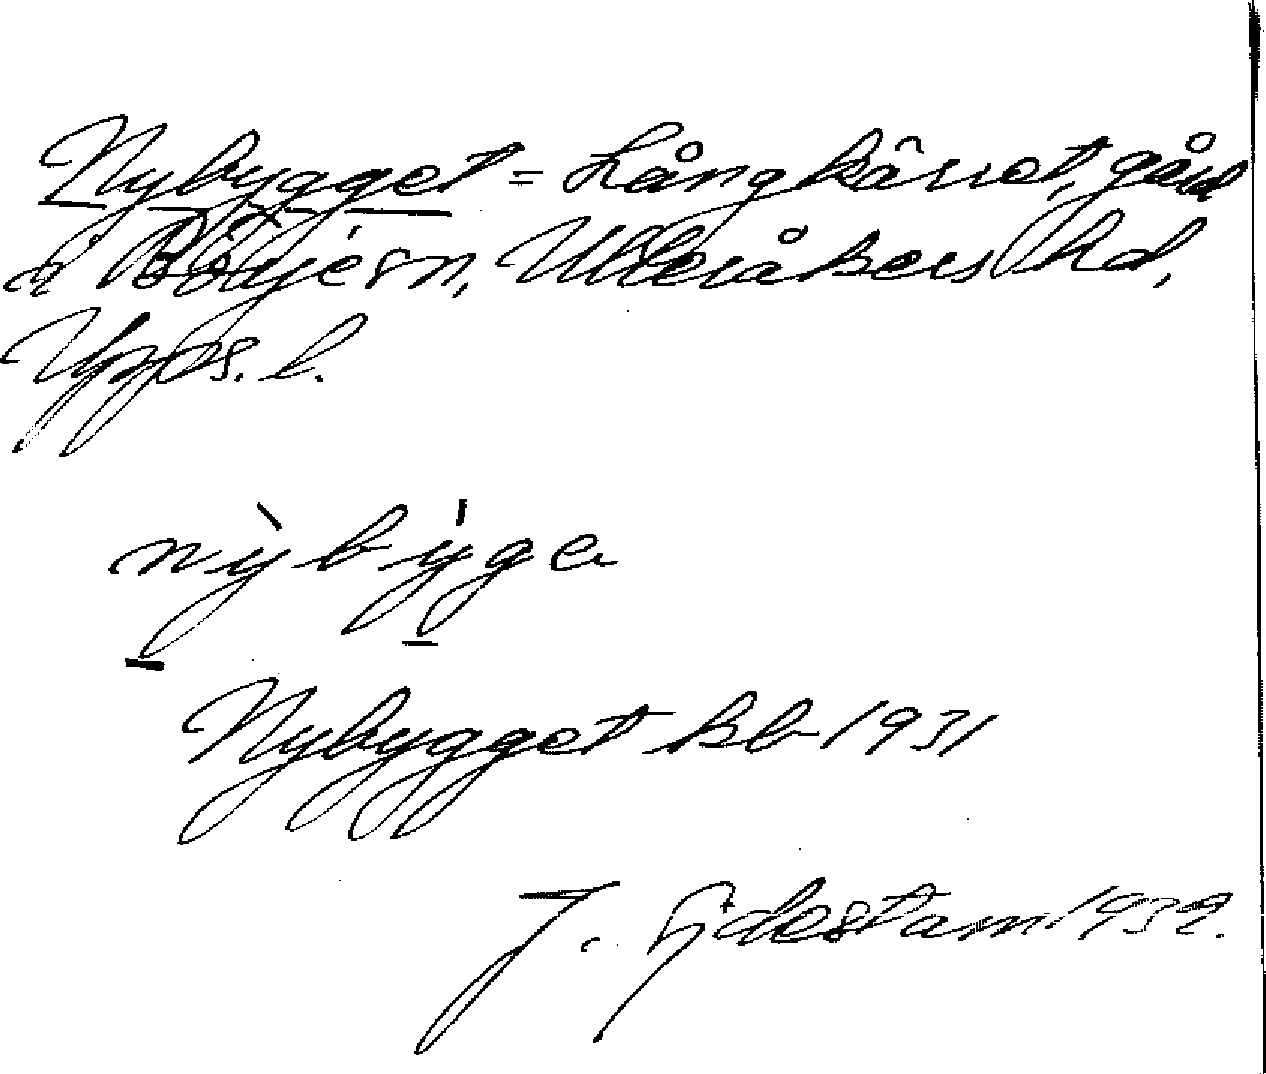 Nybygget = Långkärret, gård
i Börje sn, Ulleråkers hd,
Upps. l.
nỳbýge
Nybygget kb 1931
J. Ejdestam 1932.